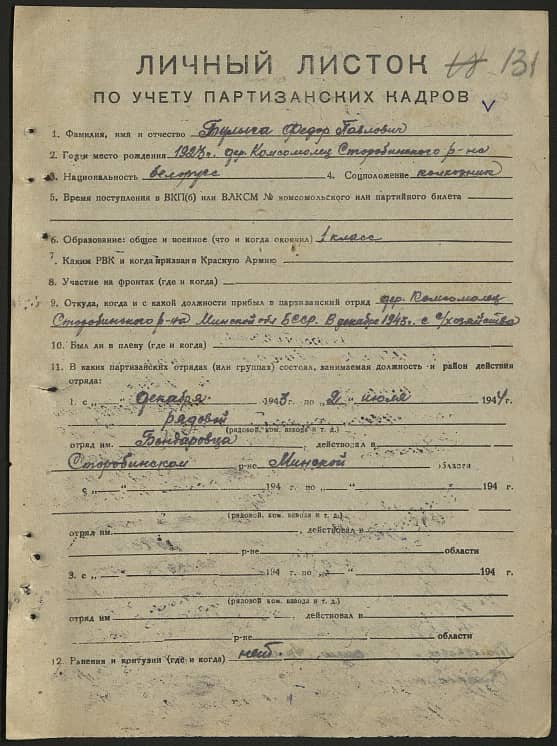 ЛИЧНЫЙ ЛИСТОК 131
ПО УЧЕТУ ПАРТИЗАНСКИХ КАДРОВ
1. Фамилия, имя и отчество Булыга Федор Павлович
2. Год и место рождения 1923 г. дер. Комсомолец Старобинского р-на
3. Национальность белорус 4. Соцположение колхозник
5. Время поступления в ВКП(б) или ВЛКСМ № комсомольского или партийного билета
6. Образование: общее и военное (что и когда окончил) 1 класс
7. Каким РВК и когда призван в Красную Армию
8. Участие на фронтах (где и когда)
9. Откуда, когда и с какой должности прибыл в партизанский отряд дер. Комсомолец
Старобинского р-на Минской обл БССР. В декабре 1943 г. с с/хозяйства
10. Был ли в плену (где и когда)
11. В каких партизанских отрядах (или группах) состоял, занимаемая должность и район действия
отряда:
1. с „ " декабря 1943 г. по „2" июля 1944 г.
рядовой
(рядовой, ком. взвода и т. д.)
отряд им. Бондаровца, действовал в
Старобинском р-не Минской области
с „ " 194 г. по „ " 194 г.
(рядовой, ком. взвода и т. д.)
отряд им. , действовал в
р-не области
3. с „ " 194 г. по „ " 194 г.
(рядовой, ком. взвода и т. д.)
отряд им , действовал в
р-не области
12. Ранения и контузии (где и когда) нет.